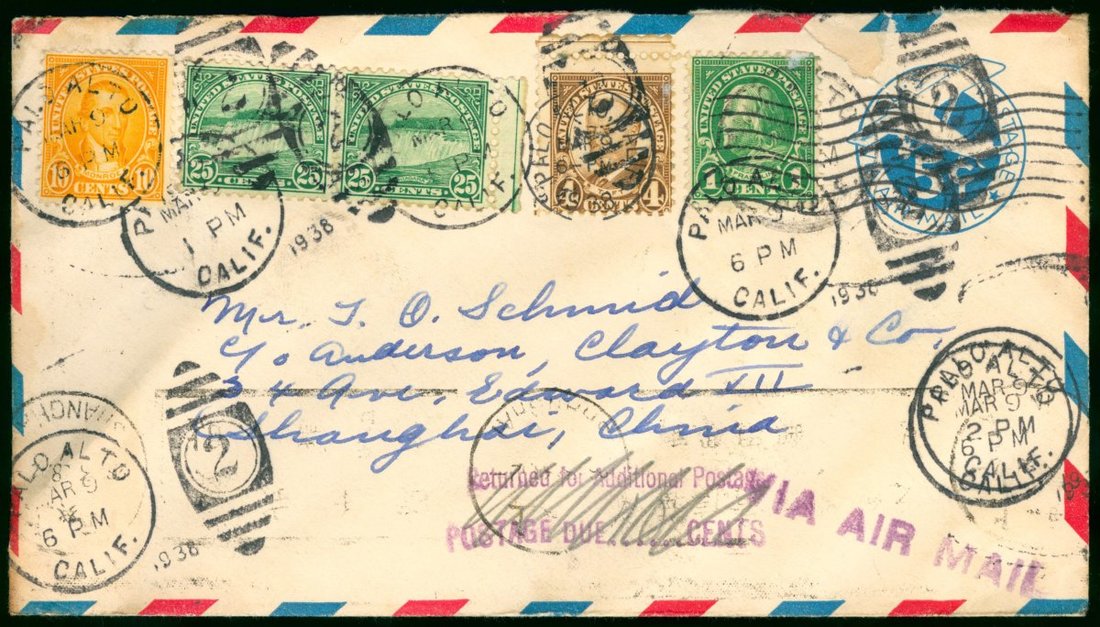 UNITED STATES POSTAGE
MONROE
10 CENTS 10
UNITED STATES POSTAGE
25 CENTS 25
UNITED STATES POSTAGE
25 CENTS 25
UNITED STATES POSTAGE
4
UNITED STATES POSTAGE
1 CENT 1
POSTAGE
AIR MAIL
PALO ALTO
MAR 9
6 PM
CALIF.
MAR
1 PM
CALIF.
1938
PALO ALTO
MAR 9
6 PM
CALIF.
1938
2
Mr. T. O. Schmid
c/o Anderson, Clayton & Co.
34 Ave. Edward VII
Shanghai, China
PALO ALTO
MAR 9
2 PM
6 PM
CALIF.
PALO ALTO
MAR 9
6 PM
CALIF.
1938
2
Returned for Additional Postage
POSTAGE DUE CENTS
VIA AIR MAIL